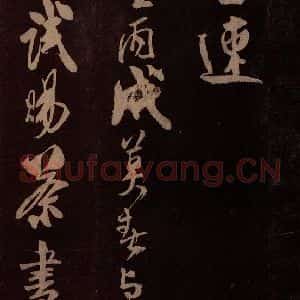 連
丙戌莫春与
試賜茶書
Shufawang.CN